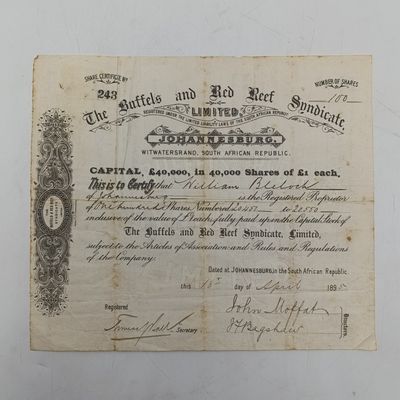 SHARE CERTIFICATE No
243
NUMBER OF SHARES
100
The Buffels and Red Reef Syndicate,
LIMITED,
REGISTERED UNDER THE LIMITED LIABILITY LAWS OF THE SOUTH AFRICAN REPUBLIC
JOHANNESBURG,
WITWATERSRAND, SOUTH AFRICAN REPUBLIC.
CAPITAL, £40,000, in 40,000 Shares of £1 each,
This is to Certify that William
of Johannesburg is the Registered Proprietor
of One hundred Shares Numbered to 20550
inclusive of the value of £1 each, fully paid upon the Capital Stock of
The Buffels and Red Reef Syndicate, Limited,
subject to the Articles of Association and Rules and Regulations
of the Company.
Dated at JOHANNESBURG, in the South African Republic
this day of April 1895
Registered
Secretary
John Moffat
Bagshaw
Directors.